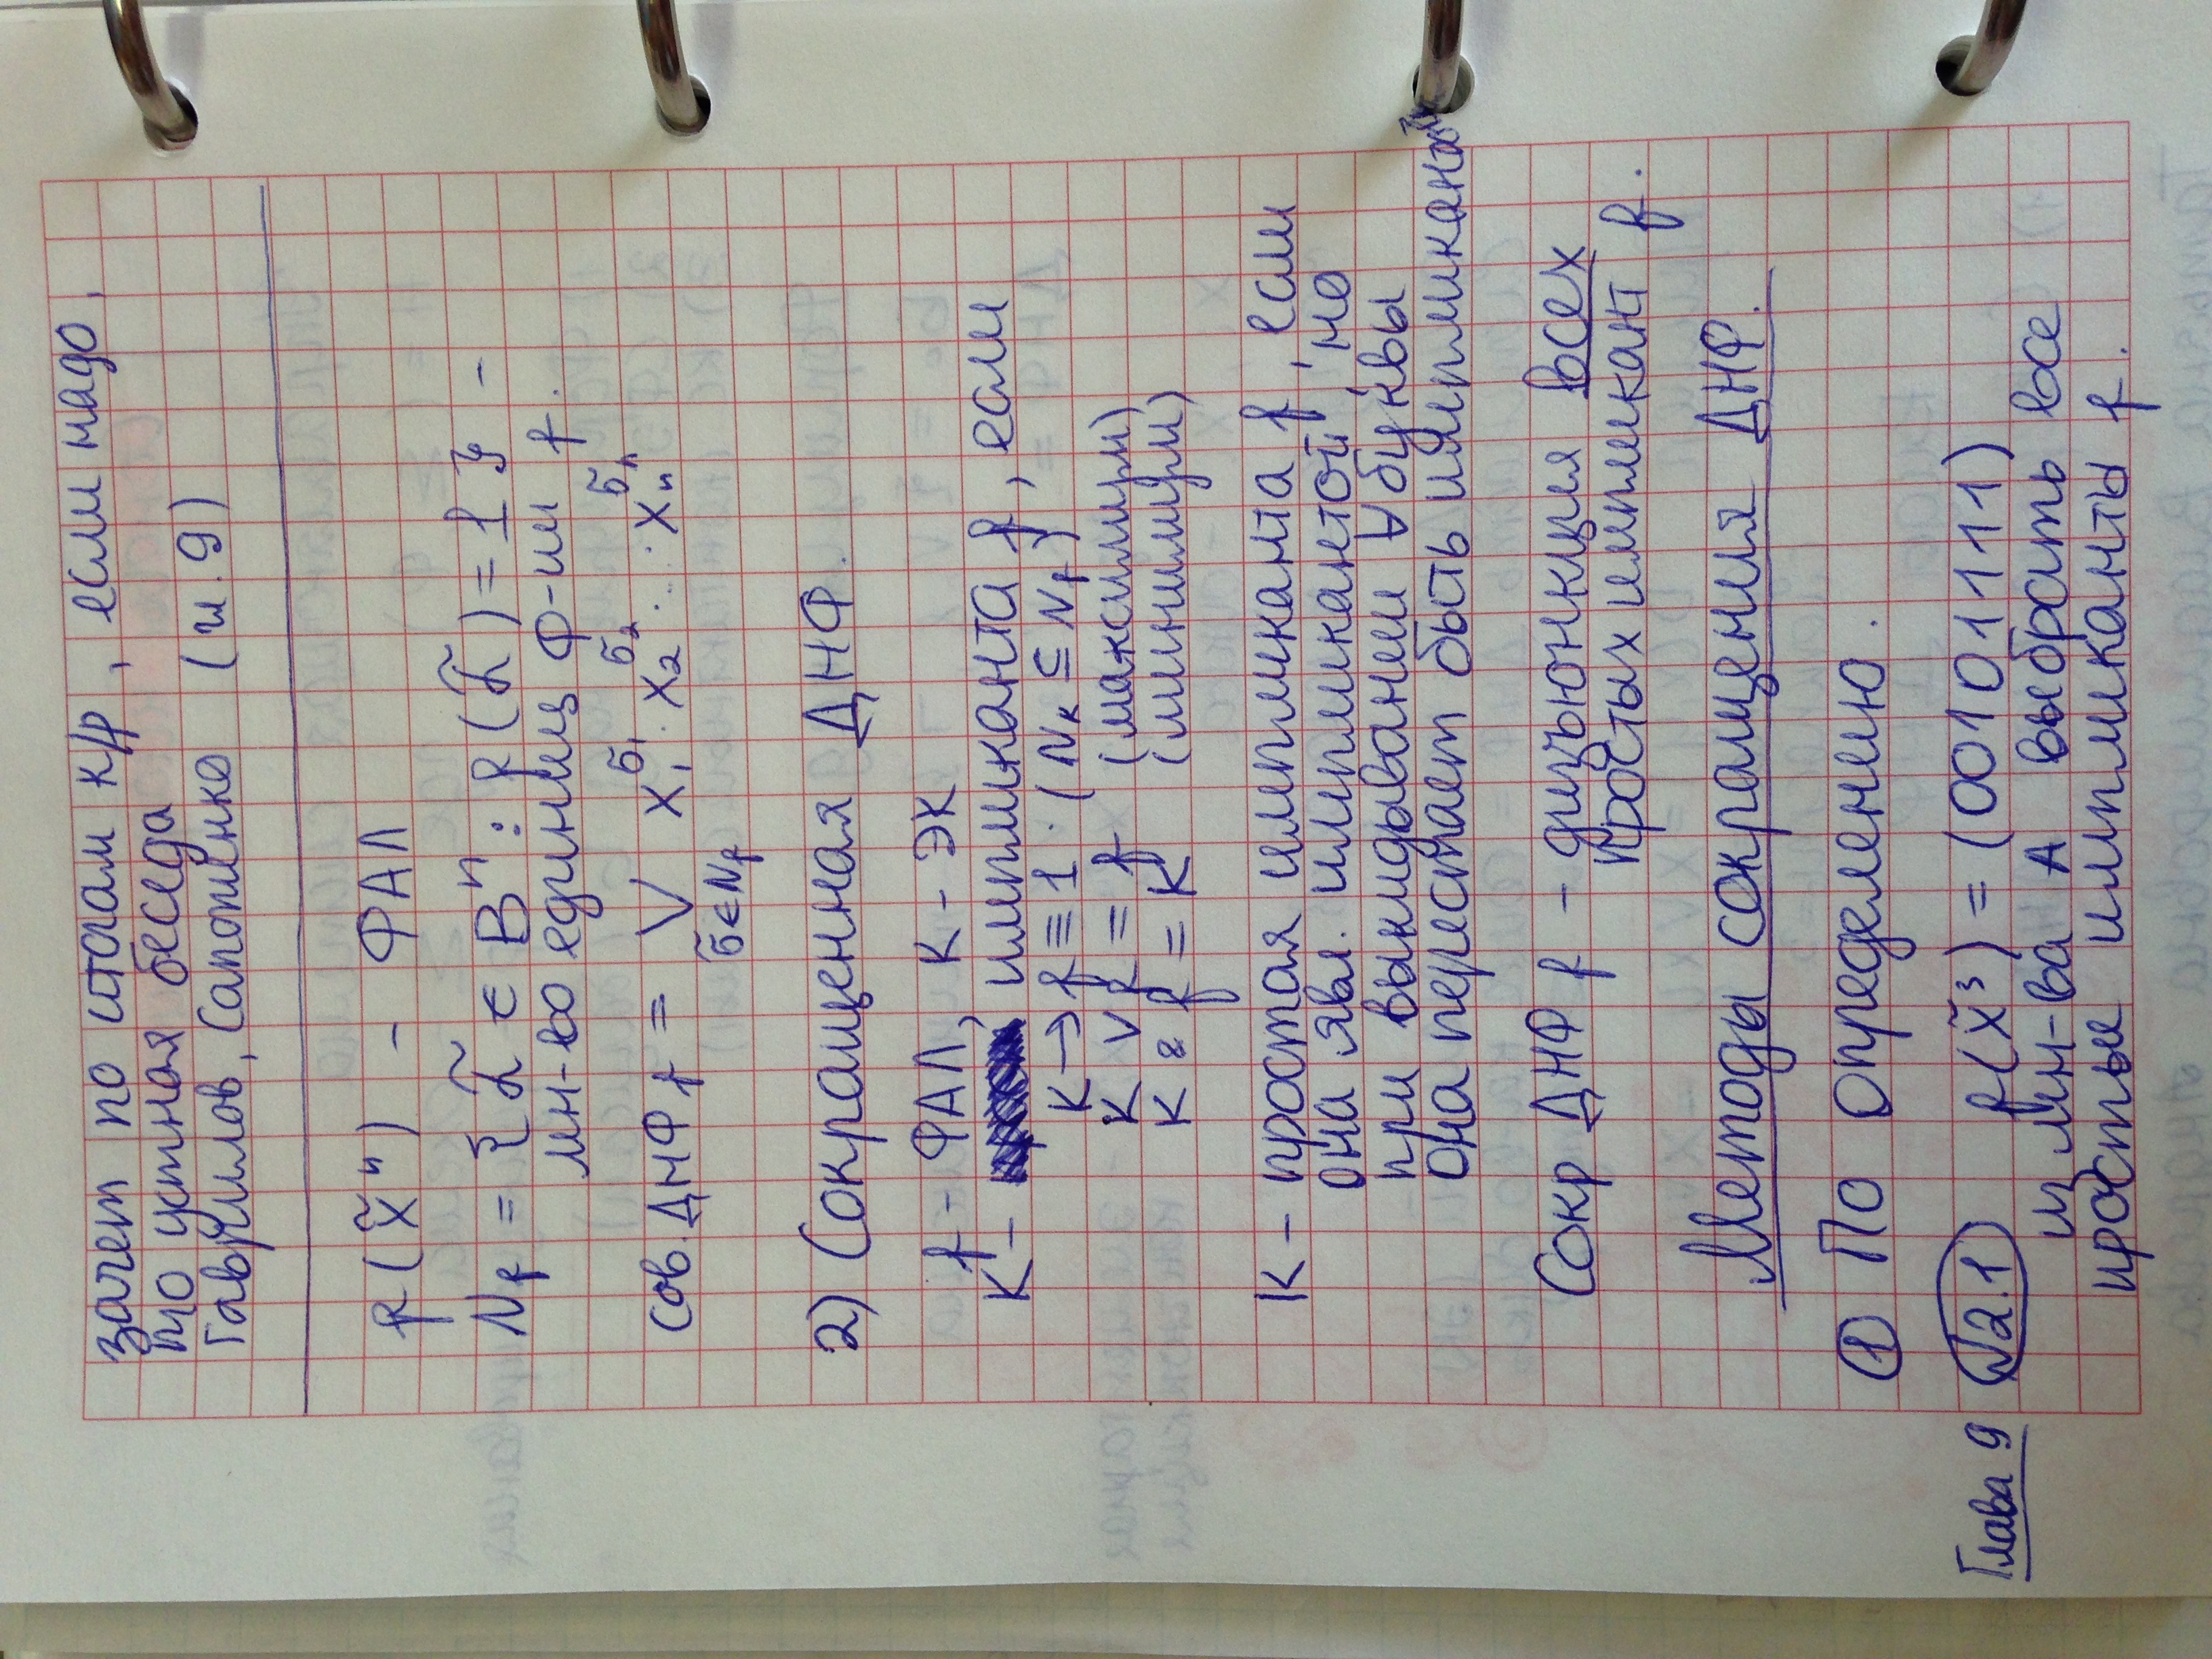 зачет по итогам к/р, если надо,
то устная беседа
Гаврилов, Сапоженко (гл. 9)
f(x̃ⁿ) – ФАЛ
N_f = {α̃ ∈ Bⁿ : f(α̃) = 1} –
мн-во единиц ф-ии f.
Сов. ДНФ_f = ∨_{σ̃∈N_f} x₁^{σ₁} · x₂^{σ₂} · ... · xₙ^{σₙ}
2) Сокращенная ДНФ.
f – ФАЛ, K – ЭК
K – импликанта f, если
K → f ≡ 1. (N_K ⊆ N_f)
K ∨ f = f (максимум)
K & f = K (минимум)
K – простая импликанта f, если
она явл. импликантой, но
при выкидывании ∀ буквы
она перестает быть импликантой
Сокр ДНФ f – дизъюнкция всех
простых импликант f.
Методы сокращения ДНФ.
① По определению.
Глава 9 №2.1 f(x̃³) = (00101111)
из мн-ва A выбрать все
простые импликанты f.